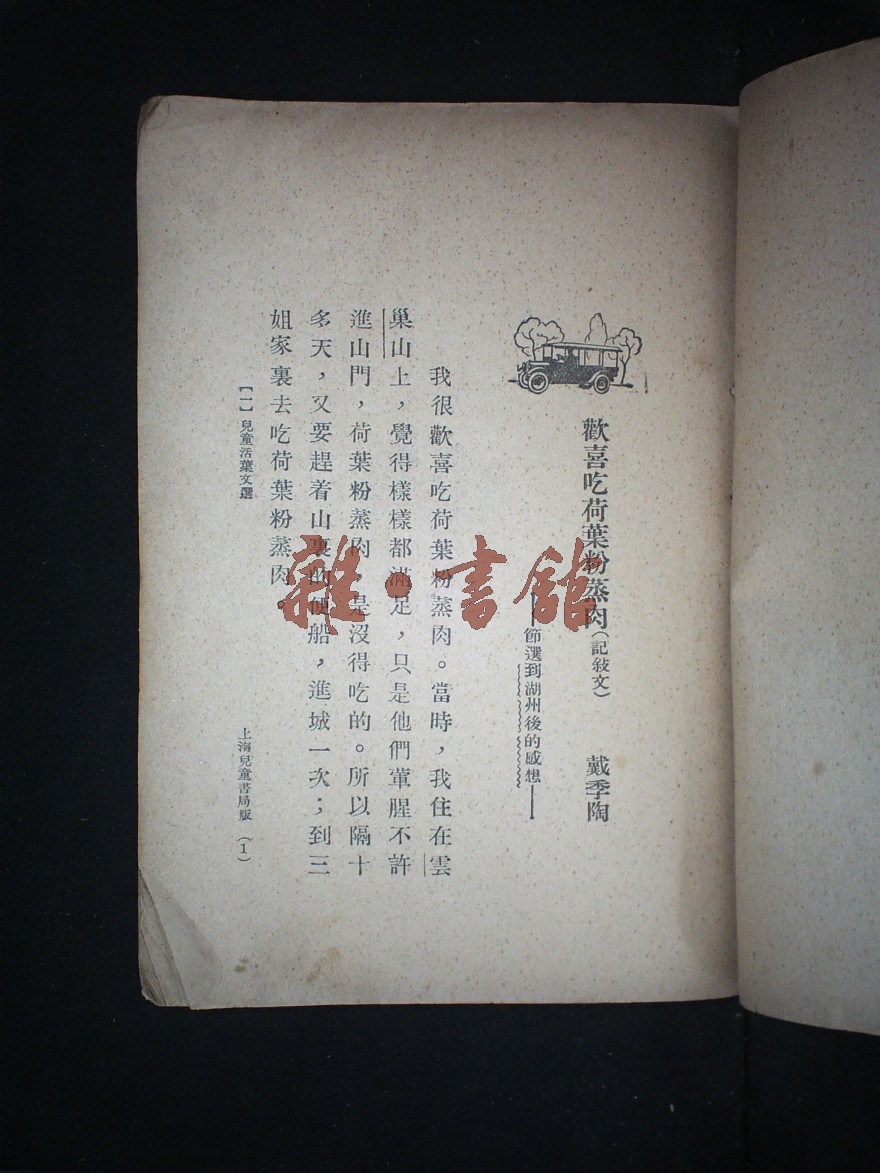 歡喜吃荷葉粉蒸肉(記敍文) 戴季陶
——節選到湖州後的感想——
我很歡喜吃荷葉粉蒸肉。當時，我住在雲
巢山上，覺得樣樣都滿足，只是他們葷腥不許
進山門，荷葉粉蒸肉，是沒得吃的。所以隔十
多天，又要趕着山裏的便船，進城一次；到三
姐家裏去吃荷葉粉蒸肉。
【一】兒童活葉文選 上海兒童書局版 (1)
雜·書館